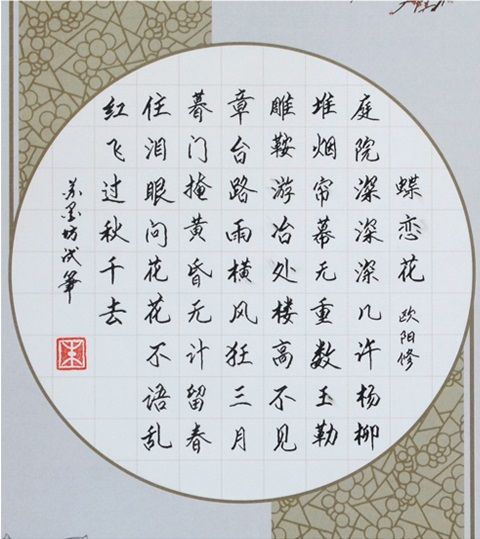 蝶恋花 欧阳修
庭院深深深几许杨柳
堆烟帘幕无重数玉勒
雕鞍游冶处楼高不见
章台路雨横风狂三月
暮门掩黄昏无计留春
住泪眼问花花不语乱
红飞过秋千去
苏墨坊试筆